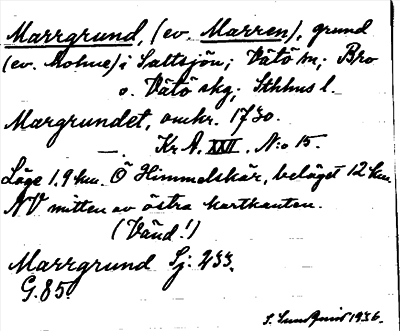 Marrgrund, (ev. Marren), grund
(ev. Holme) i Saltsjön; Vätö sn; Bro
o. Vätö skg; Sthlms l.
Margrundet, omkr. 1730.
—„— Kr. A. XXII. N:o 15.
Läge 1.9 km. Ö Himmelskär, beläget 12 km.
NV mitten av östra kartkanten.
(Vänd!)
Marrgrund Sj: 233.
G.85.
S. Sundqvist 1936.